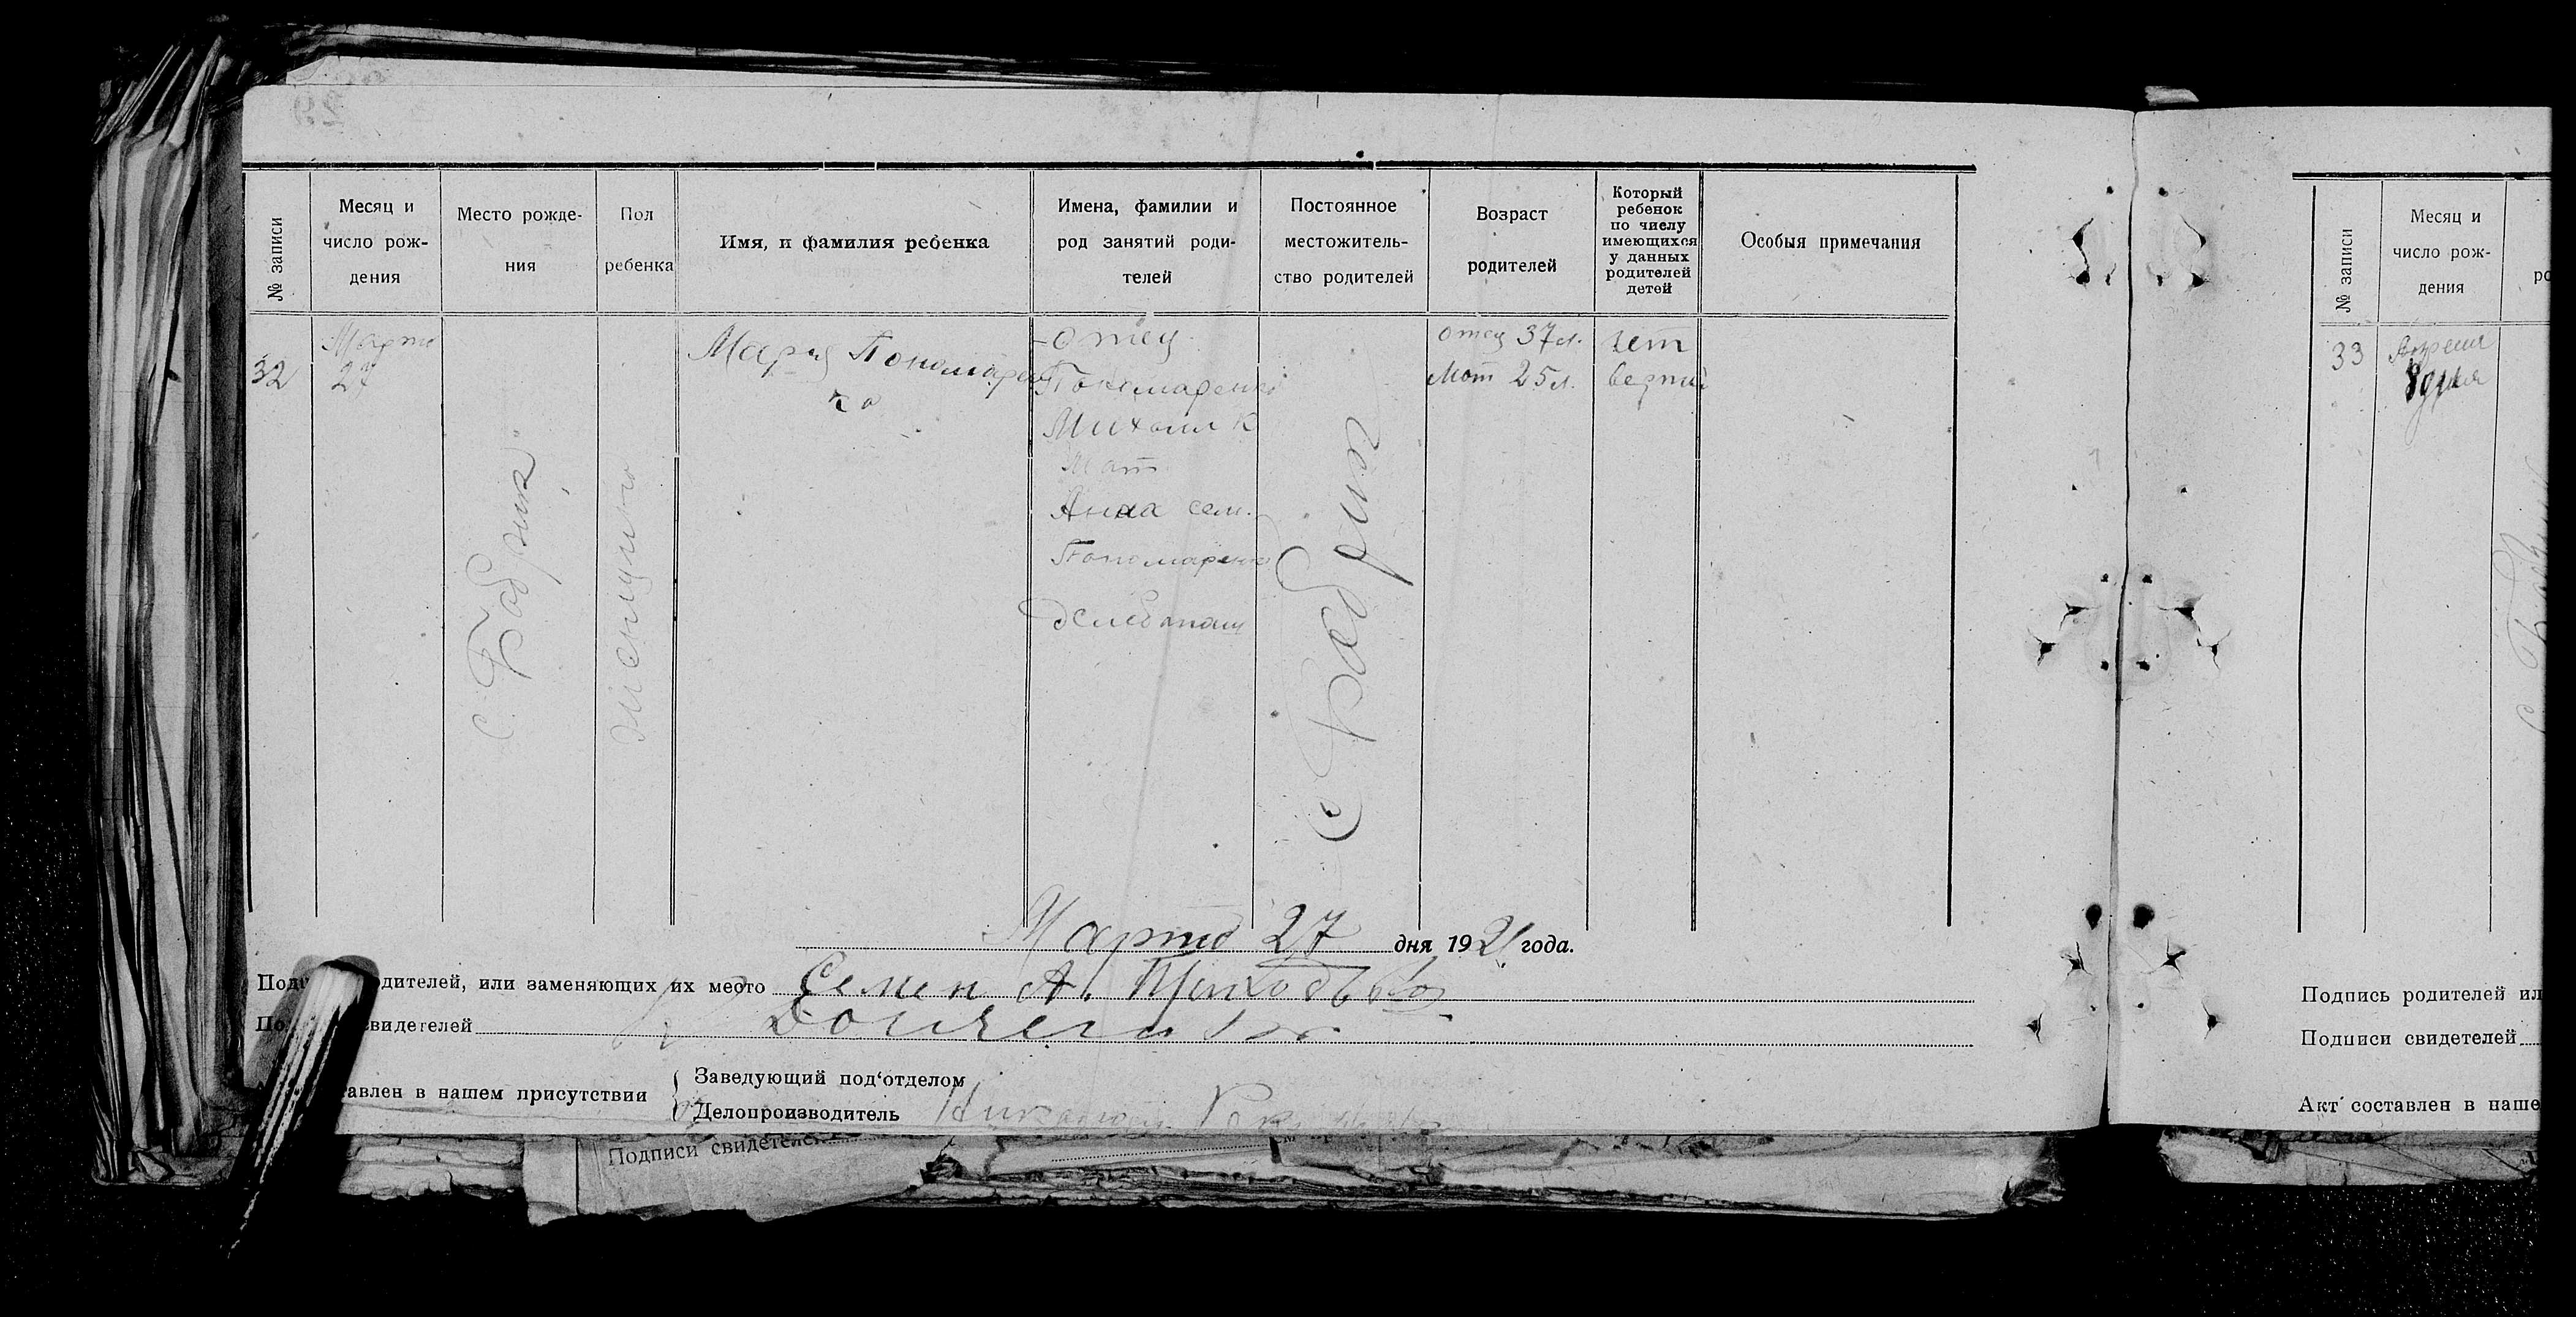 № записи
Месяц и
число рож-
дения
Место рожде-
ния
Пол
ребенка
Имя, и фамилия ребенка
Имена, фамилии и
род занятий роди-
телей
Постоянное
местожитель-
ство родителей
Возраст
родителей
Который
ребенок
по числу
имеющихся
у данных
родителей
детей
Особыя примечания
32
Марта
27
с. Бобрик
женщина
Мария Пономарен
ко
отец
Пономаренко
Михаил К
Мат
Анна сем.
Пономаренко
с Бобрик
отец 37 л.
Мат 25 л.
чет
вертий
Марта 27 дня 1921 года.
Под дителей, или заменяющих их место Семен А.
По свидетелей
тавлен в нашем присутствии
Заведующий под'отделом
Делопроизводитель
Подписи свидетелей
№ записи
Месяц и
число рож-
дения
ро
33
Апреля
8 дня
Подпись родителей ил
Подписи свидетелей
Акт составлен в наше